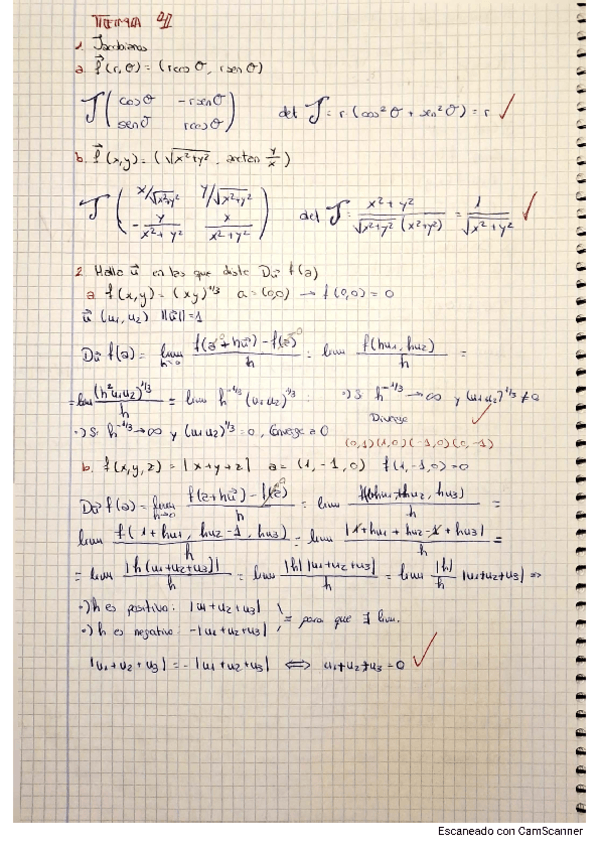 Tema 21
1. Jacobianos
a. f⃗(r,θ) = (rcosθ, rsenθ)
J ( cosθ   -rsenθ
senθ   rcosθ )   det J = r(cos²θ + sen²θ) = r ✓
b. f⃗(x,y) = (√(x²+y²), arctan y/x)
J ( x/√(x²+y²)   y/√(x²+y²)
-y/(x²+y²)   x/(x²+y²) )   det J = (x²+y²)/(√(x²+y²)(x²+y²)) = 1/√(x²+y²) ✓
2. Halla u⃗ en las que existe Du⃗ f(a)
a f(x,y) = (xy)^1/3   a = (0,0) → f(0,0) = 0
u⃗ (u1,u2)   ||u⃗|| = 1
Du⃗ f(a) = lim h→0 (f(a+hu⃗) - f(a))/h = lim f(hu1, hu2)/h =
= lim (h²u1u2)^1/3/h = lim h^-1/3 (u1u2)^1/3 :   ·) Si h^-1/3 → ∞ y (u1u2)^1/3 ≠ 0
Diverge ✓
·) Si h^-1/3 → ∞ y (u1u2)^1/3 = 0, Converge a 0
(0,1)(1,0)(-1,0)(0,-1)
b. f(x,y,z) = |x+y+z|   a = (1,-1,0)   f(1,-1,0) = 0
Du⃗ f(a) = lim h→0 (f(a+hu⃗) - f(a))/h = lim
lim f(1+hu1, hu2-1, hu3)/h = lim |1+hu1+hu2-1+hu3|/h =
= lim |h(u1+u2+u3)|/h = lim |h| |u1+u2+u3|/h = lim |h|/h |u1+u2+u3| ⇒
·) h es positivo: |u1+u2+u3|
= para que ∃ lim.
·) h es negativo: -|u1+u2+u3|
|u1+u2+u3| = -|u1+u2+u3| ⇔ u1+u2+u3=0 ✓
Escaneado con CamScanner